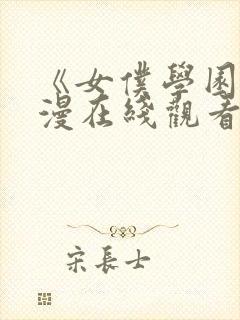 《女僕學園
漫在綫觀看
宋長士